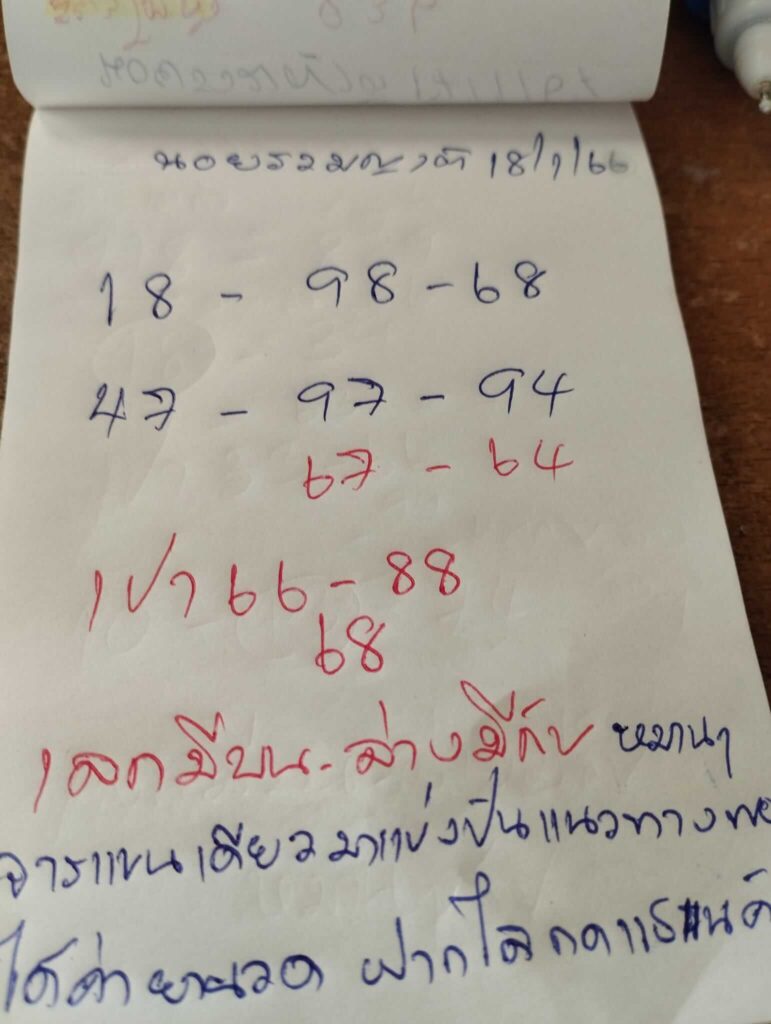 นอยรวมญาติ 18/1/66
18 - 98 - 68
47 - 97 - 94
67 - 64
เปา 66 - 88
68
เลกมีบน - ล่างมีกับ หมานๆ
จารแขนเดียวมาแบ่งปันแนวทาง
ได้ค่ายานวด ฝากไลกดแชแนด์